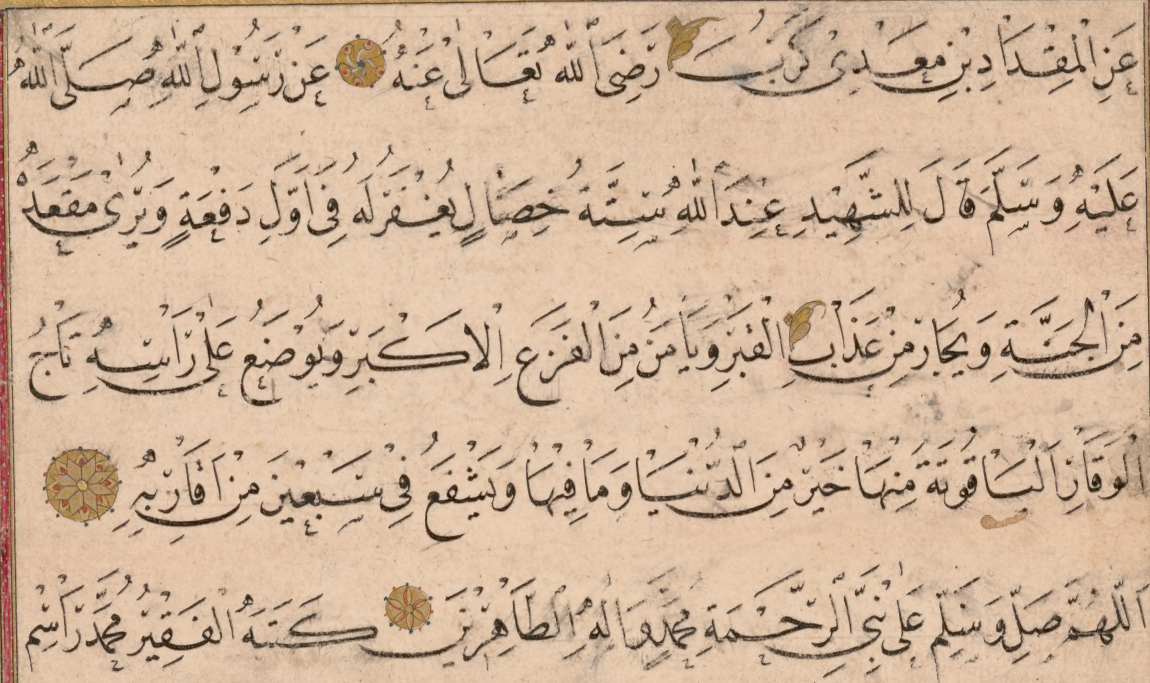 عَنِ الْمِقْدَادِ بْنِ مَعْدِي كَرِبَ رَضِيَ اللّٰهُ تَعَالٰى عَنْهُ عَنْ رَسُولِ اللّٰهِ صَلَّى اللّٰهُ
عَلَيْهِ وَسَلَّمَ قَالَ لِلشَّهِيدِ عِنْدَ اللّٰهِ سِتَّةُ خِصَالٍ يُغْفَرُ لَهُ فِي اَوَّلِ دَفْعَةٍ وَيُرٰى مَقْعَدَهُ
مِنَ الْجَنَّةِ وَيُجَارُ مِنْ عَذَابِ الْقَبْرِ وَيَأْمَنُ مِنَ الْفَزَعِ الْاَكْبَرِ وَيُوضَعُ عَلٰى رَأْسِهِ تَاجُ
الْوَقَارِ اَلْيَاقُوتَةُ مِنْهَا خَيْرٌ مِنَ الدُّنْيَا وَمَا فِيهَا وَيَشْفَعُ فِي سَبْعِينَ مِنْ اَقَارِبِهِ
اَللّٰهُمَّ صَلِّ وَسَلِّمْ عَلٰى نَبِيِّ الرَّحْمَةِ مُحَمَّدٍ وَاٰلِهِ الطَّاهِرِينَ كَتَبَهُ الْفَقِيرُ مُحَمَّد رَاسِم